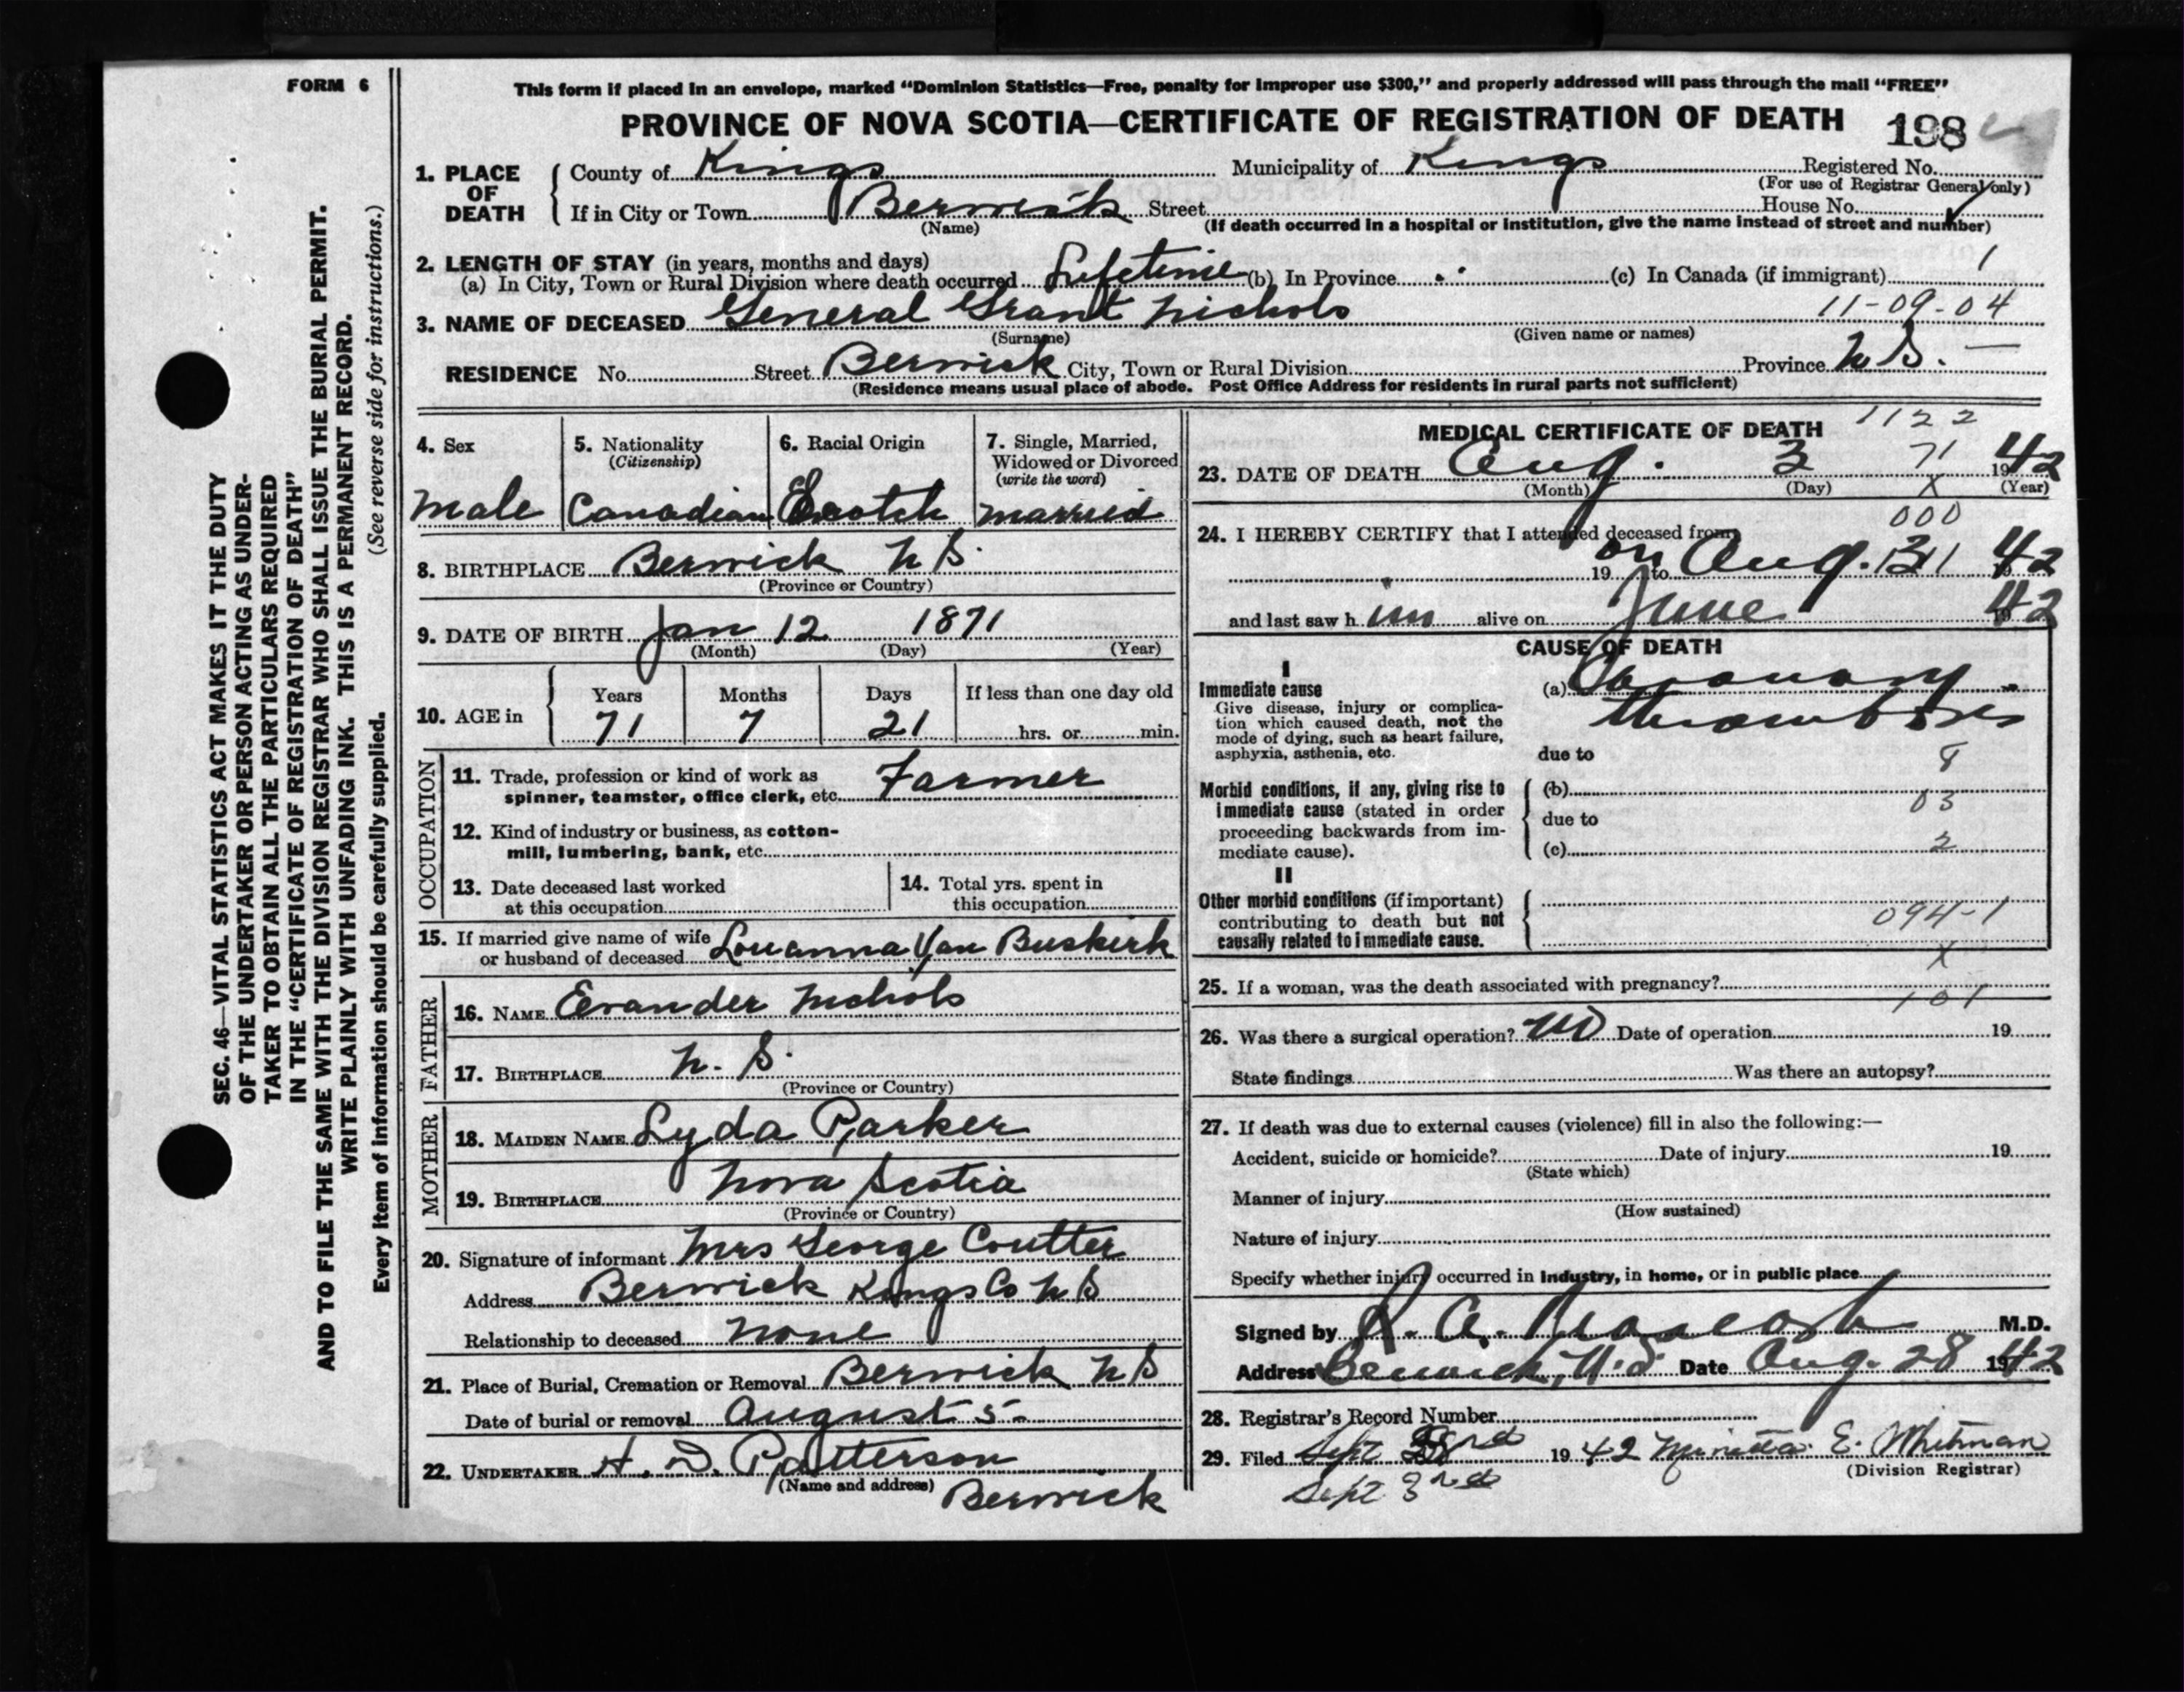 FORM 6
This form if placed in an envelope, marked "Dominion Statistics—Free, penalty for improper use $300," and properly addressed will pass through the mail "FREE"
PROVINCE OF NOVA SCOTIA—CERTIFICATE OF REGISTRATION OF DEATH 198
1. PLACE OF DEATH County of Kings Municipality of Kings Registered No.
(For use of Registrar General only)
If in City or Town Berwick Street House No.
(Name) (If death occurred in a hospital or institution, give the name instead of street and number)
2. LENGTH OF STAY (in years, months and days) 1
(a) In City, Town or Rural Division where death occurred Lifetime (b) In Province (c) In Canada (if immigrant)
3. NAME OF DECEASED General Grant Nichols 11-09-04
(Surname) (Given name or names)
RESIDENCE No. Street Berwick City, Town or Rural Division Province N S. —
(Residence means usual place of abode. Post Office Address for residents in rural parts not sufficient)
4. Sex
male
5. Nationality
(Citizenship)
Canadian
6. Racial Origin
Scotch
7. Single, Married,
Widowed or Divorced
(write the word)
married
8. BIRTHPLACE Berwick N S.
(Province or Country)
9. DATE OF BIRTH Jan 12 1871
(Month) (Day) (Year)
10. AGE in
Years Months Days If less than one day old
71 7 21 hrs. or min.
OCCUPATION
11. Trade, profession or kind of work as
spinner, teamster, office clerk, etc. Farmer
12. Kind of industry or business, as cotton-
mill, lumbering, bank, etc.
13. Date deceased last worked
at this occupation
14. Total yrs. spent in
this occupation
15. If married give name of wife
or husband of deceased Louanna Van Buskirk
FATHER
16. NAME Evander Nichols
17. BIRTHPLACE N. S.
(Province or Country)
MOTHER
18. MAIDEN NAME Lyda Parker
19. BIRTHPLACE Nova Scotia
(Province or Country)
20. Signature of informant Mrs George Coutter
Address Berwick Kings Co N S
Relationship to deceased none
21. Place of Burial, Cremation or Removal Berwick N S
Date of burial or removal August 5
22. UNDERTAKER H. D. Patterson
(Name and address) Berwick
1122
MEDICAL CERTIFICATE OF DEATH
23. DATE OF DEATH Aug. 3 71 1942
(Month) (Day) X (Year)
000
24. I HEREBY CERTIFY that I attended deceased from
19 to on Aug. 42
and last saw h im alive on June 1942
CAUSE OF DEATH
I
Immediate cause
Give disease, injury or complica-
tion which caused death, not the
mode of dying, such as heart failure,
asphyxia, asthenia, etc.
(a) Coronary
thrombosis
due to 8
Morbid conditions, if any, giving rise to
immediate cause (stated in order
proceeding backwards from im-
mediate cause).
(b)
03
due to
(c) 2
II
Other morbid conditions (if important)
contributing to death but not
causally related to immediate cause.
094-1
X
25. If a woman, was the death associated with pregnancy?
101
26. Was there a surgical operation? no Date of operation 19
State findings Was there an autopsy?
27. If death was due to external causes (violence) fill in also the following:—
Accident, suicide or homicide? Date of injury 19
(State which)
Manner of injury
(How sustained)
Nature of injury
Specify whether injury occurred in Industry, in home, or in public place
Signed by R. A. M.D.
Address Berwick, N.S. Date Aug. 28 1942
28. Registrar's Record Number
29. Filed Sept 3rd 1942 Minetta E. Whitman
(Division Registrar)
Sept 3rd
SEC. 46—VITAL STATISTICS ACT MAKES IT THE DUTY
OF THE UNDERTAKER OR PERSON ACTING AS UNDER-
TAKER TO OBTAIN ALL THE PARTICULARS REQUIRED
IN THE "CERTIFICATE OF REGISTRATION OF DEATH"
AND TO FILE THE SAME WITH THE DIVISION REGISTRAR WHO SHALL ISSUE THE BURIAL PERMIT.
WRITE PLAINLY WITH UNFADING INK. THIS IS A PERMANENT RECORD.
Every item of information should be carefully supplied. (See reverse side for instructions.)